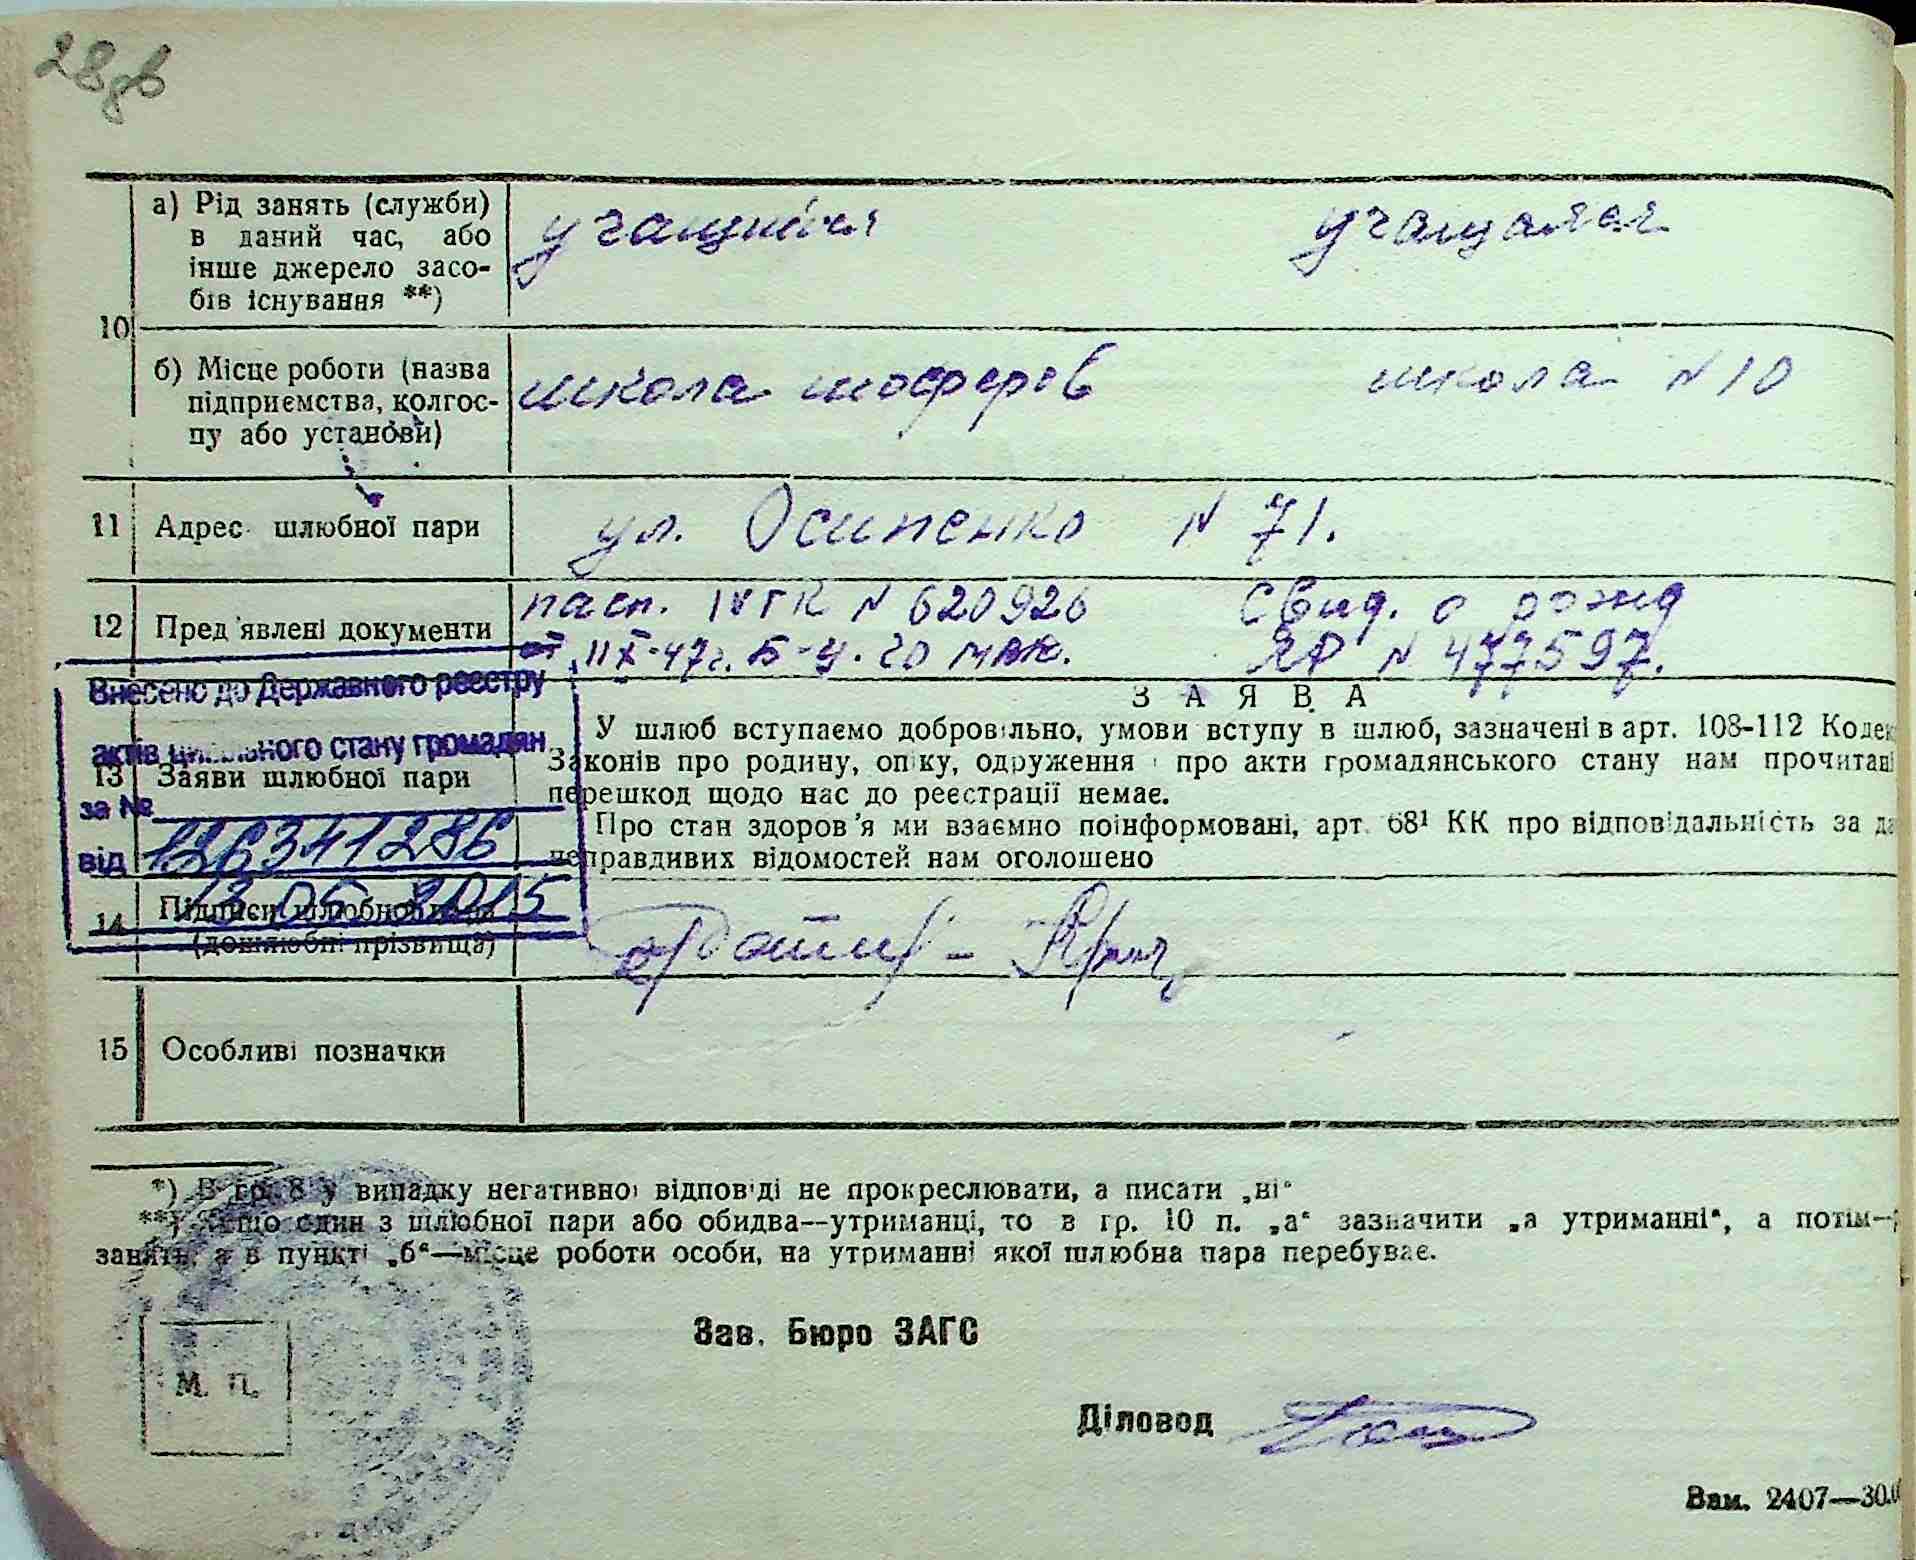 28
а) Рід занять (служби) в даний час, або інше джерело засобів існування **)
учащийся учащаяся
10
б) Місце роботи (назва підприємства, колгоспу або установи)
школа шоферов школа N 10
11 Адрес шлюбної пари
ул. Осипенко N 71.
12 Пред'явлені документи
пасп. IV ГК N 620926 свид. о рожд
ЯР N 477597.
Внесено до Державного реєстру
актів цивільного стану громадян
за №
126341286
від
13.05.2015
13 Заяви шлюбної пари
З А Я В А
У шлюб вступаємо добровільно, умови вступу в шлюб, зазначені в арт. 108-112 Кодек
Законів про родину, опіку, одруження і про акти громадянського стану нам прочитані
перешкод щодо нас до реєстрації немає.
Про стан здоров'я ми взаємно поінформовані, арт. 68¹ КК про відповідальність за да
неправдивих відомостей нам оголошено
14 Підписи шлюбної пари
(дошлюбні прізвища)
15 Особливі позначки
*) В гр. 8 у випадку негативної відповіді не прокреслювати, а писати „ні“
**) Якщо один з шлюбної пари або обидва—утриманці, то в гр. 10 п. „а“ зазначити „а утриманні“, а потім—
занять, а в пункті „б“—місце роботи особи, на утриманні якої шлюбна пара перебуває.
М. П.
Зав. Бюро ЗАГС
Діловод
Зам. 2407—30.